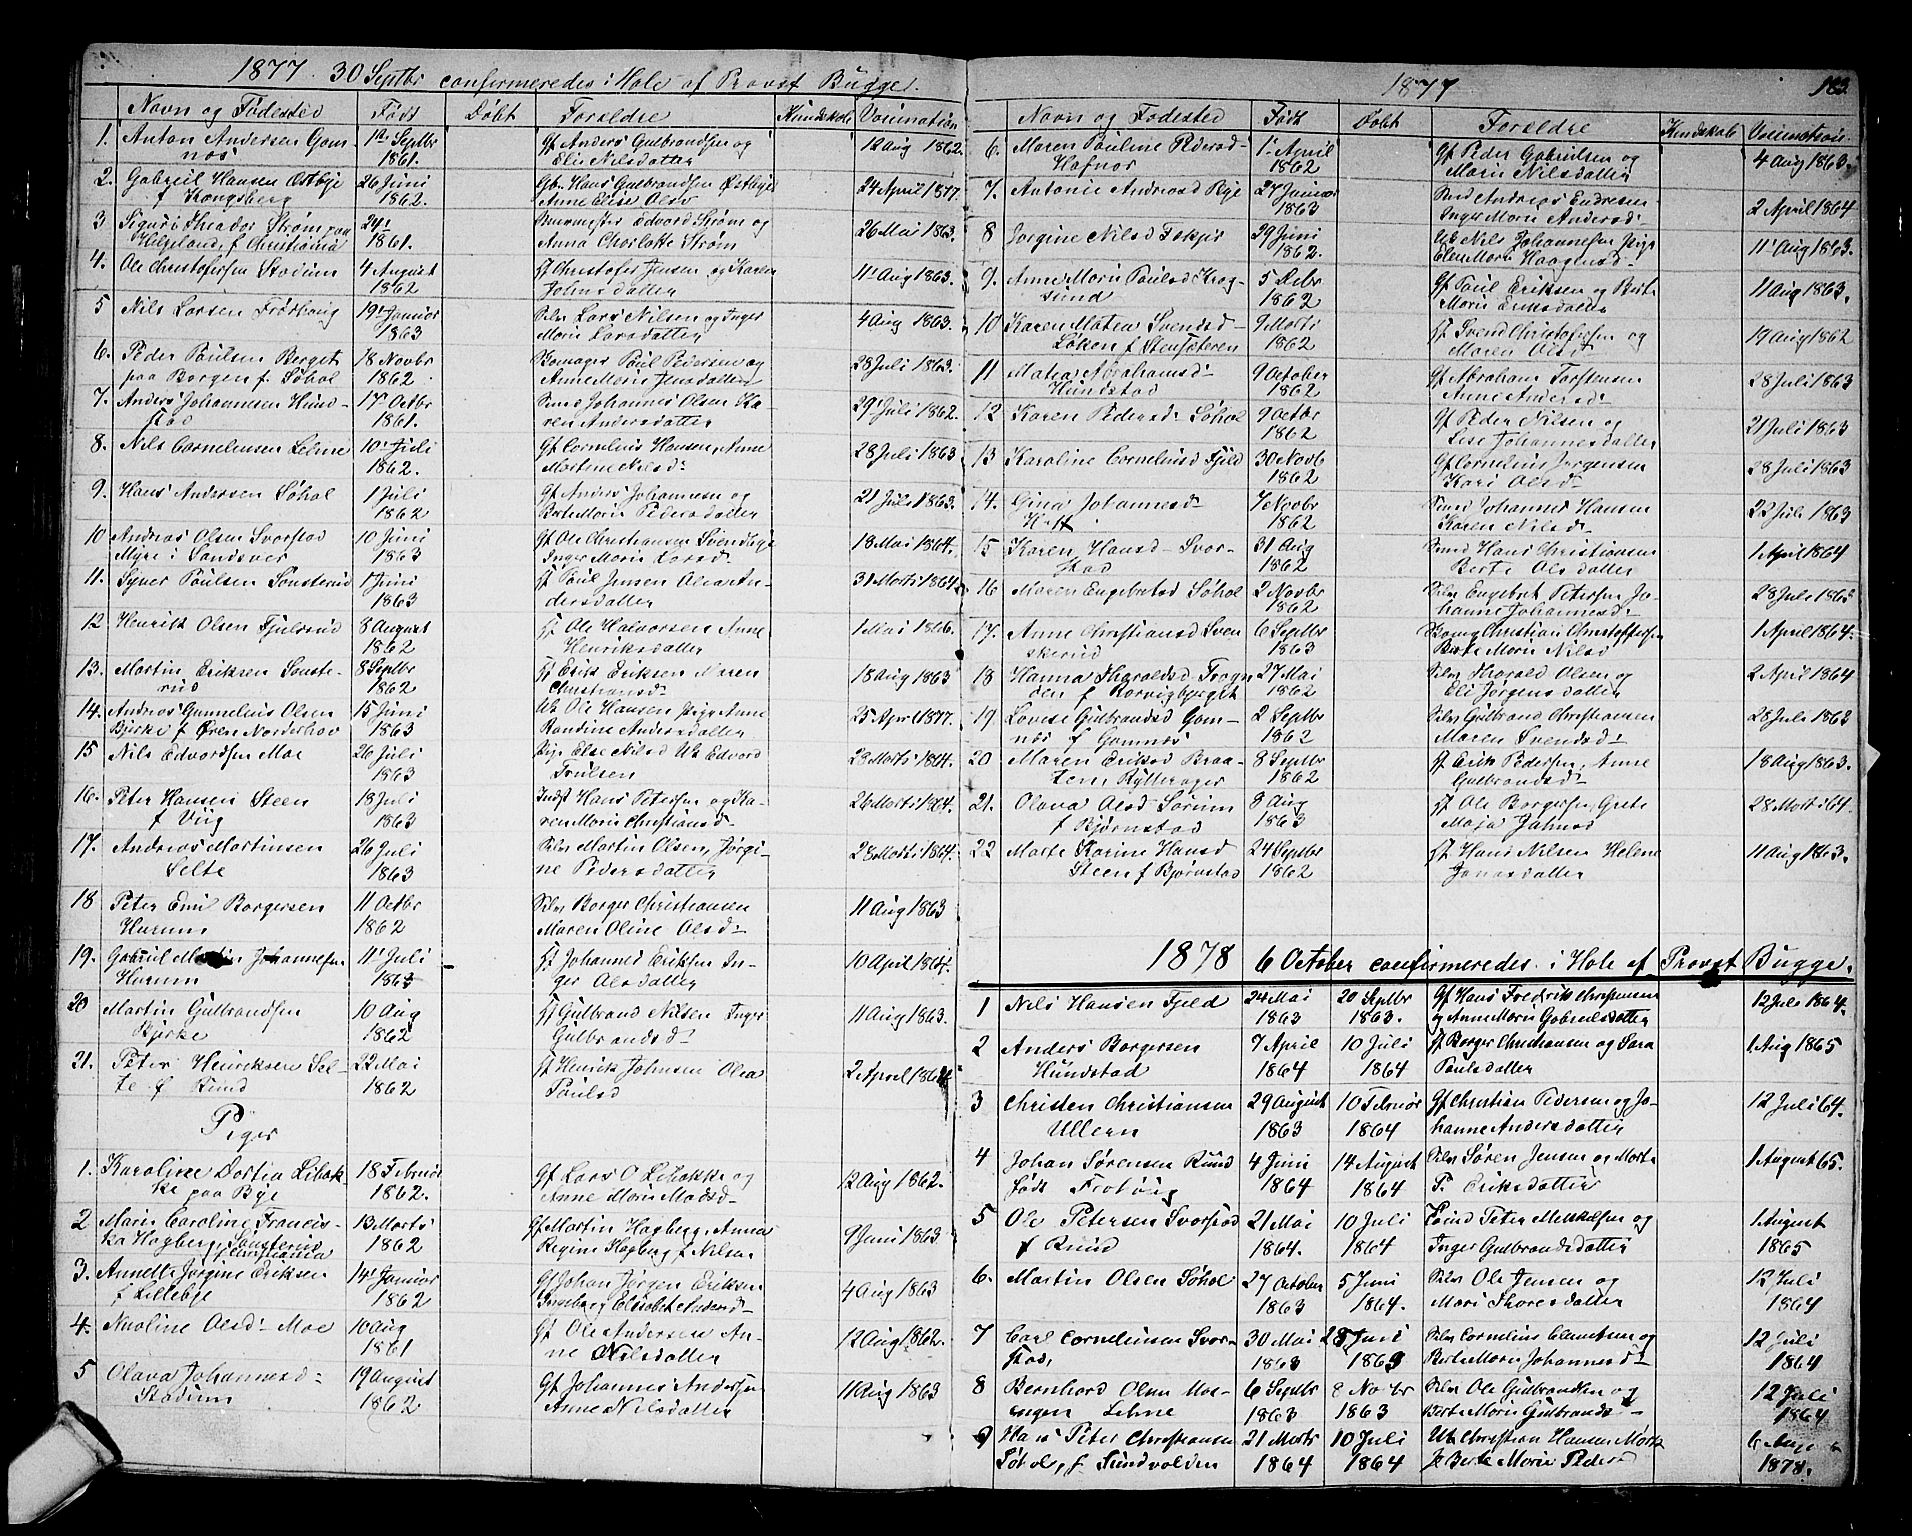 1877. 30 Septbr confirmeredes i Hole af Provst Bugge.
Navn og Fødested Født Døbt Forældre Kundskab Vaccination
1. Anton Andersen Gom- 1ste Septbr Gf Anders Gulbrandsen og 12 Aug 1862.
næs 1861. Elie Nilsdatter
2. Gabriel Hansen Østbye 26 Juni Gbr Hans Gulbrandsen Østbye 24 April 1877.
f Kongsberg 1862. Anne Elise Olsdr
3 Sigurd Theodor Strøm paa 24 Edvard Strøm og 26 Mai 1863.
Helgeland, f Christiania 1861. Anna Charlotte Strøm
4. Ole Christofersen Stadum 4 August Jf Christofer Jensen og Karen 11 Aug 1863.
1862 Johnsdatter
5 Nils Larsen Frøshoug 19 Januar Selv Lars Nilsen og Inger 4 Aug 1863.
1863 Marie Larsdatter
6. Peder Paulsen Berget 18 Novbr Bomager Paul Pedersen og 28 Juli 1863.
paa Borgen f. Søhol 1862. Anne Marie Jensdatter
7. Anders Johannesen Hund- 17 Octbr Johannes Olsen Ka- 29 Juli 1862.
stad 1861. ren Andersdatter
8. Nils Corneliusen Lehne 10 Juli Gf Cornelius Hansen, Anne 28 Juli 1863
1862. Martine Nilsd:
9. Hans Andersen Søhol 1 Juli Gf Anders Johannesen og 21 Juli 1863.
1862 Berte Marie Pedersdatter
10 Andreas Olsen Svarstad 10 Juni Gf Ole Christiansen Svendsby 18 Mai 1864.
Myre i Sandsver 1863 Inger Marie Larsd:
11. Syver Paulsen Sønsterud 1 Juni Jf Paul Jensen Olea An- 31 Marts 1864.
1863 dersdatter
12 Henrik Olsen Fjulsrud 8 August Jf Ole Halvorsen Anne 1 Mai 1866.
1862 Henriksdatter
13. Martin Eriksen Sønste- 8 Septbr Jf Erik Eriksen Maren 18 Aug 1863
rud 1862 Christiansd:
14. Andreas Gunnelius Olsen 15 Juni Uk Ole Hansen Pige Anne 25 April 1877.
Bjerke f Øren Norderhov 1863 Randine Andersdatter
15 Nils Edvardsen Moe 26 Juli Pige Else Nilsd Uk Edvard 28 Marts 1864.
1863 Truelsen
16. Peter Hansen Steen 18 Juli Indst Hans Petersen og Ka- 26 Marts 1864.
f Viig 1863 ren Marie Christiansd:
17. Andreas Martinsen 26 Juli Selv Martin Olsen, Jørgi- 28 Marts 1864.
Selte 1863 ne Pedersdatter
18 Peter Emil Borgersen 11 Octbr Selv Borger Christiansen 11 Aug 1863
Hurum 1862 Maren Oline Olsd:
19. Gabriel Martin Johannesen 11 Juli Jf Johannes Eriksen In- 10 April 1864.
Hurum 1863 ger Olsdatter
20 Martin Gulbrandsen 10 Aug Jf Gulbrand Nilsen Inger 11 Aug 1863.
Bjerke 1862 Gulbrandsd:
21. Peter Henriksen Sel- 22 Mai Jf Henrik Johnsen Olea 2 April 1864
te f Ruud 1862 Paulsd
Piger
1. Karoline Dortea Libak- 18 Februar Gf Lars O Libakke og 12 Aug 1862.
ke paa Bye 1862. Anne Marie Madsd
2 Marie Caroline Francis- 13 Marts Gf Martin Hagberg, Anna 9 Juni 1863
ka Hagberg, Sønsterud 1862 Regine Hagberg f Nilsen
f Christiania
3. Annette Jørgine Eriksen 14 Januar Gf Johan Jørgen Eriksen 4 Aug 1863
f Lillebye 1862 Ingeborg Elisabet Andersd
4. Nicoline Olsd: Moe 10 Aug Gf Ole Andersen An- 12 Aug 1862.
1861 ne Nilsdatter
5 Olava Johannesd: 19 August Gf Johannes Andersen 11 Aug 1863
Stadum 1862 Anne Nilsdatter
1877 183.
Navn og Fødested Født Døbt Forældre Kundskab Vaccination.
6. Maren Pauline Pedersd 1 April Gf Peder Gabrielsen og 4 Aug 1863.
Hafnor 1862 Marie Nilsdatter
7. Antonie Andreasd Bye 27 Januar Andreas Endresen 2 April 1864
1863 Inger Marie Andersd:
8 Jørgine Nilsd Fekjær 29 Juni Uk Nils Johannesen Pige 11 Aug 1863.
1862. Elen Marie Haagensd
9. Anne Marie Paulsd Krog- 5 Debr Gf Paul Eriksen og Berte 11 Aug 1863.
sund 1862 Marie Eriksdatter
10 Karen Matea Svendsd 9 Marts Jf Svend Christofersen og 19 Aug 1862
Løken f Stensæteren 1862 Maren Olsd
11 Matea Abrahamsd: 9 October Gf Abraham Torstensen 28 Juli 1863
Hundstad 1862 Anne Andersd:
12 Karen Pedersd: Søhol 9 Octbr Gf Peder Nilsen og 21 Juli 1863
1862 Lise Johannesdatter
13 Karoline Corneliusd Fjeld 30 Novb Gf Cornelius Jørgensen 28 Juli 1863
1862 Kari Olsd
14. Gina Johannesd 7 Novbr Johannes Hansen 22 Juli 1863
1862 Karen Nilsd:
15 Karen Hansd Svar- 31 Aug Hans Christiansen 1 April 1864
stad 1862 Berte Olsdatter
16 Maren Engebretsd Søhol 2 Novbr Selv Engebret Petersen Jo- 28 Juli 1863
1862 hanne Johannesd:
17. Anne Christiansd Sven 6 Septbr Christian Christoffersen 1 April 1864.
skerud 1863 Berte Marie Nilsd
18 Hanna Thoraldsd Frogn 27 Mai Selv Thorald Olsen og 2 April 1864
den f Korvigbyget 1862 Eli Jørgensdatter
19 Lovise Gulbrandsd Gom- 2 Septbr Selv Gulbrand Christiansen 28 Juli 1863
næs f Gomnæs 1862 Maren Svendsd:
20 Maren Eriksd Braa- 8 Septbr Jf Erik Pedersen, Anne 18 Aug 1863.
ten Rytterager 1862 Gulbrandsd:
21. Olava Olsd Sørum 3 Aug Jf Ole Borgersen, Grete 28 Marts 64.
f Bjørnstad 1863 Maja Jahnsd
22 Marte Karine Hansd 24 Septbr Jf Hans Nilsen Helene 11 Aug 1863.
Steen f Bjørnstad 1862 Jonasdatter
1878 6 October confirmeredes i Hole af Provst Bugge.
1 Nils Hansen Fjeld 24 Mai 20 Septbr Gf Hans Fredrik Christiansen 12 Juli 1864.
1863 1863. og Anne Marie Gabrielsdatter
2 Anders Borgersen 7 April 10 Juli Jf Borger Christiansen og Sara 1 Aug 1865
Hundstad 1864 1864 Paulsdatter
3 Christen Christiansen 29 August 10 Februar Gf Christian Pedersen og Jo- 12 Juli 64.
Ullern 1863 1864 hanne Andersdatter
4 Johan Sørensen Ruud 4 Juni 14 August Selv Søren Jensen og Marte 1 August 65.
født Frøhaug 1864 1864 P. Eriksdatter
5 Ole Petersen Svarstad 21 Mai 10 Juli Peter Mikkelsen og 1 August
f Ruud 1864. 1864 Inger Gulbrandsdatter 1865
6. Martin Olsen Søhol 27 October 5 Juni Selv Ole Jensen og 12 Juli
1863 1864. Mari Thoresdatter 1864
7 Carl Corneliusen Svar- 30 Mai 28 Juni Selv Cornelius Clemetsen og 12 Juli
stad, 1863 1863 Berte Marie Johannesd: 1864
8 Bernhard Olsen Mos- 6 Septbr 8 Novbr Selv Ole Gulbrandsen og 12 Juli
engen Lehne 1863 1863 Berte Marie Gulbrandsd 1864
9 Hans Peter Christiansen 21 Marts 10 Juli Uk Christian Hansen Mork 6 Aug
Søhol, f Sundvolden 1864 1864 Berte Marie Pedersd 1878.